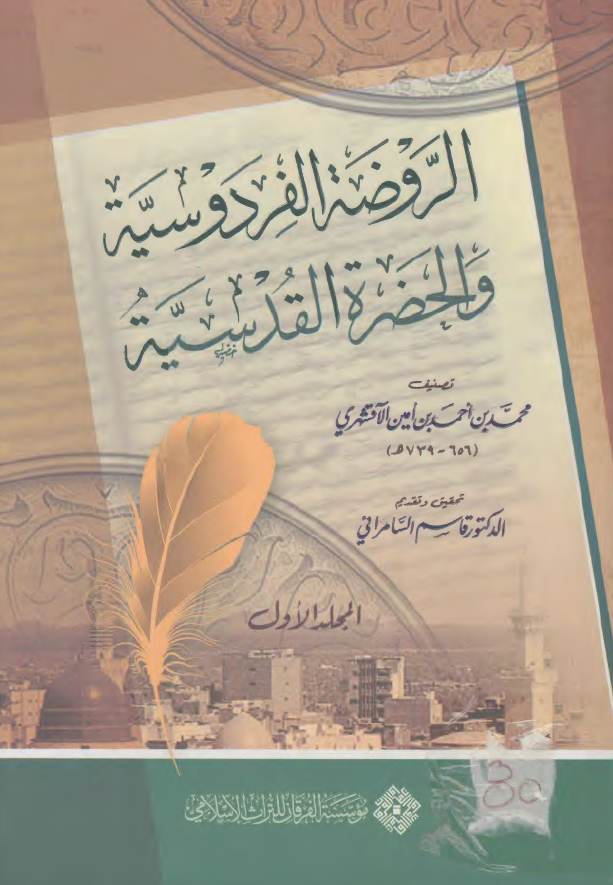 الرَّوْضَة الفِرْدَوْسِيَّة
وَالحَضْرَة القُدْسِيَّةُ
تصنيف
محمَّد بن أحمَد بن أمين الآقشهري
(٦٥٦ - ٧٣٩هـ)
تحقيق وتقديم
الدكتور قاسم السَّامرائي
المجلد الأول
مؤسَّسَة الفرقان للتراث الإسلامي
30